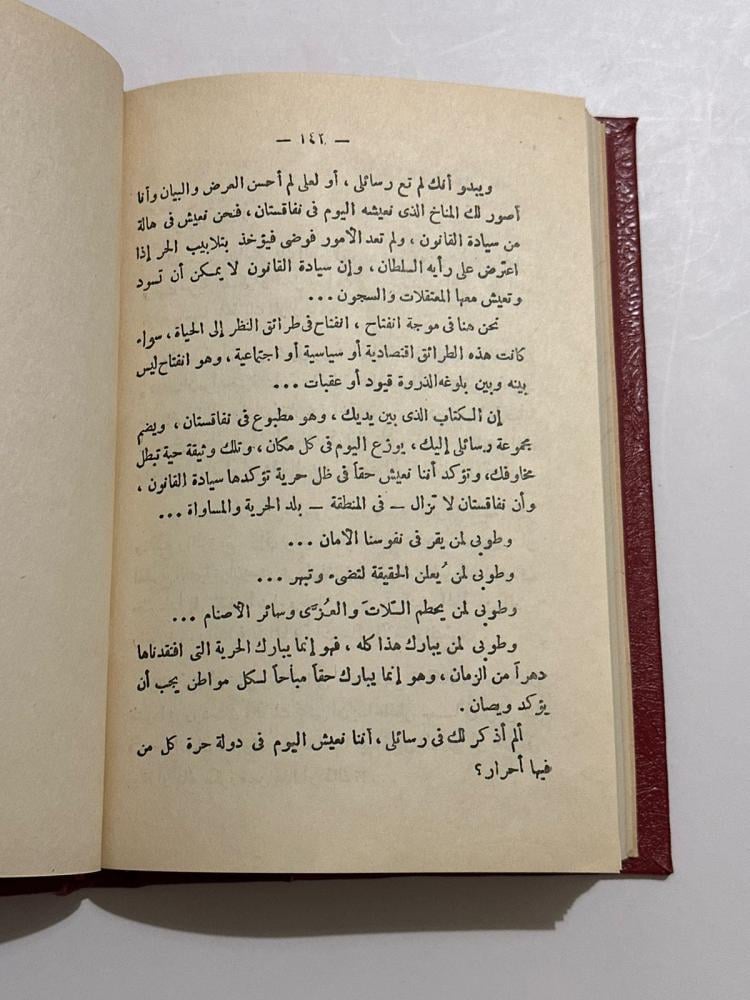 — ١٤٢ —
ويبدو أنك لم تع رسائلى ، أو لعلى لم أحسن العرض والبيان وأنا
أصور لك المناخ الذى نعيشه اليوم فى نفاقستان ، فنحن نعيش فى هالة
من سيادة القانون ، ولم تعد الأمور فوضى فيؤخذ بتلابيب الحر إذا
اعترض على رأيه السلطان ، وإن سيادة القانون لا يمكن أن تسود
وتعيش معها المعتقلات والسجون ...
نحن هنا فى موجة انفتاح ، انفتاح فى طرائق النظر إلى الحياة ، سواء
كانت هذه الطرائق اقتصادية أو سياسية أو اجتماعية ، وهو انفتاح ليس
بينه وبين بلوغه الذروة قيود أو عقبات ...
إن الكتاب الذى بين يديك ، وهو مطبوع فى نفاقستان ، ويضم
مجموعة رسائلى إليك ، يوزع اليوم فى كل مكان ، وتلك وثيقة حية تبطل
مخاوفك ، وتؤكد أننا نعيش حقاً فى ظل حرية تؤكدها سيادة القانون ،
وأن نفاقستان لا تزال — فى المنطقة — بلد الحرية والمساواة ...
وطوبى لمن يقر فى نفوسنا الأمان ...
وطوبى لمن يُعلن الحقيقة لتضىء وتبهر ...
وطوبى لمن يحطم السّلات والعُزّى وسائر الأصنام ...
وطوبى لمن يبارك هذا كله ، فهو إنما يبارك الحرية التى افتقدناها
دهراً من الزمان ، وهو إنما يبارك حقاً مباحاً لكل مواطن يجب أن
يؤكد ويصان .
ألم أذكر لك فى رسائلى ، أننا نعيش اليوم فى دولة حرة كل من
فيها أحرار ؟